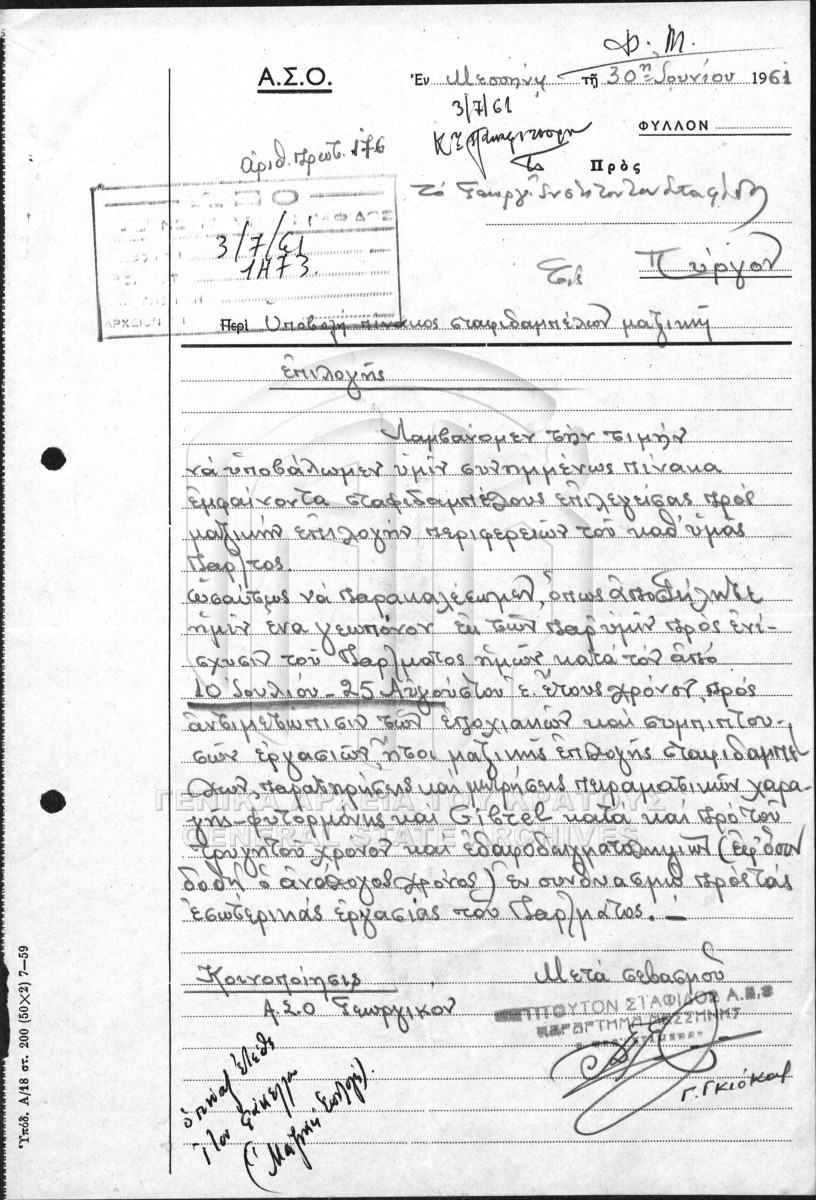 Φ. Μ.
Α.Σ.Ο.
Ἐν Μεσσήνῃ τῇ 30ῃ Ἰουνίου 1961
3/7/61
ΦΥΛΛΟΝ
ἀριθ. πρωτ. 176
Πρὸς
Τὸ Γεωργ. Ἰνστιτοῦτον Σταφίδος
3/7/61
1473
ΑΡΧΕΙΟΝ
Πύργον
Περὶ Ὑποβολὴ πίνακος σταφιδαμπέλων μαζικῆς
ἐπιλογῆς
Λαμβάνομεν τὴν τιμὴν
νὰ ὑποβάλωμεν ὑμῖν συνημμένως πίνακα
ἐμφαίνοντα σταφιδαμπέλους ἐπιλεγείσας πρὸς
μαζικὴν ἐπιλογὴν περιφερειῶν τοῦ καθ' ἡμᾶς
Παρ/τος.
Ὡσαύτως νὰ παρακαλέσωμεν, ὅπως ἀποστείλητε
ἡμῖν ἕνα γεωπόνον ἐκ τῶν παρ' ὑμῖν πρὸς ἐνί-
σχυσιν τοῦ Παρ/ματος ἡμῶν κατὰ τὸν ἀπὸ
10 Ἰουλίου - 25 Αὐγούστου ἐ. ἔτους χρόνον, πρὸς
ἀντιμετώπισιν τῶν ἐποχιακῶν καὶ συμπιπτου-
σῶν ἐργασιῶν, ἤτοι μαζικῆς ἐπιλογῆς σταφιδαμπέ
λων, παρατηρήσεις καὶ μετρήσεις πειραματικῶν χαρα-
γῆς-φυτορμόνης καὶ Gibrel κατὰ καὶ πρὸ τοῦ
τρυγητοῦ χρόνον καὶ ἐδαφοδειγματοληψιῶν (ἐφ' ὅσον
δοθῇ ὁ ἀνάλογος χρόνος) ἐν συνδυασμῷ πρὸς τὰς
ἐσωτερικὰς ἐργασίας τοῦ Παρ/ματος.–
Κοινοποίησις
Α.Σ.Ο Γεωργικὸν
Μετὰ σεβασμοῦ
ΙΝΣΤΙΤΟΥΤΟΝ ΣΤΑΦΙΔΟΣ Α.Σ.Ο
ΠΑΡΑΡΤΗΜΑ ΜΕΣΣΗΝΗΣ
Γ. Γκιόκας
ὁ πίναξ ἐτέθη
εἰς τὸν φάκελλο
(Μαζικὴ Ἐπιλογή).
Ὑπόδ. Α/18 στ. 200 (50×2) 7—59
ΓΕΝΙΚΑ ΑΡΧΕΙΑ ΤΟΥ ΚΡΑΤΟΥΣ
GENERAL STATE ARCHIVES